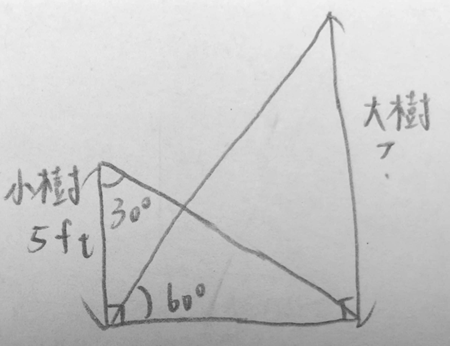 大樹
?
小樹
5ft
30°
60°